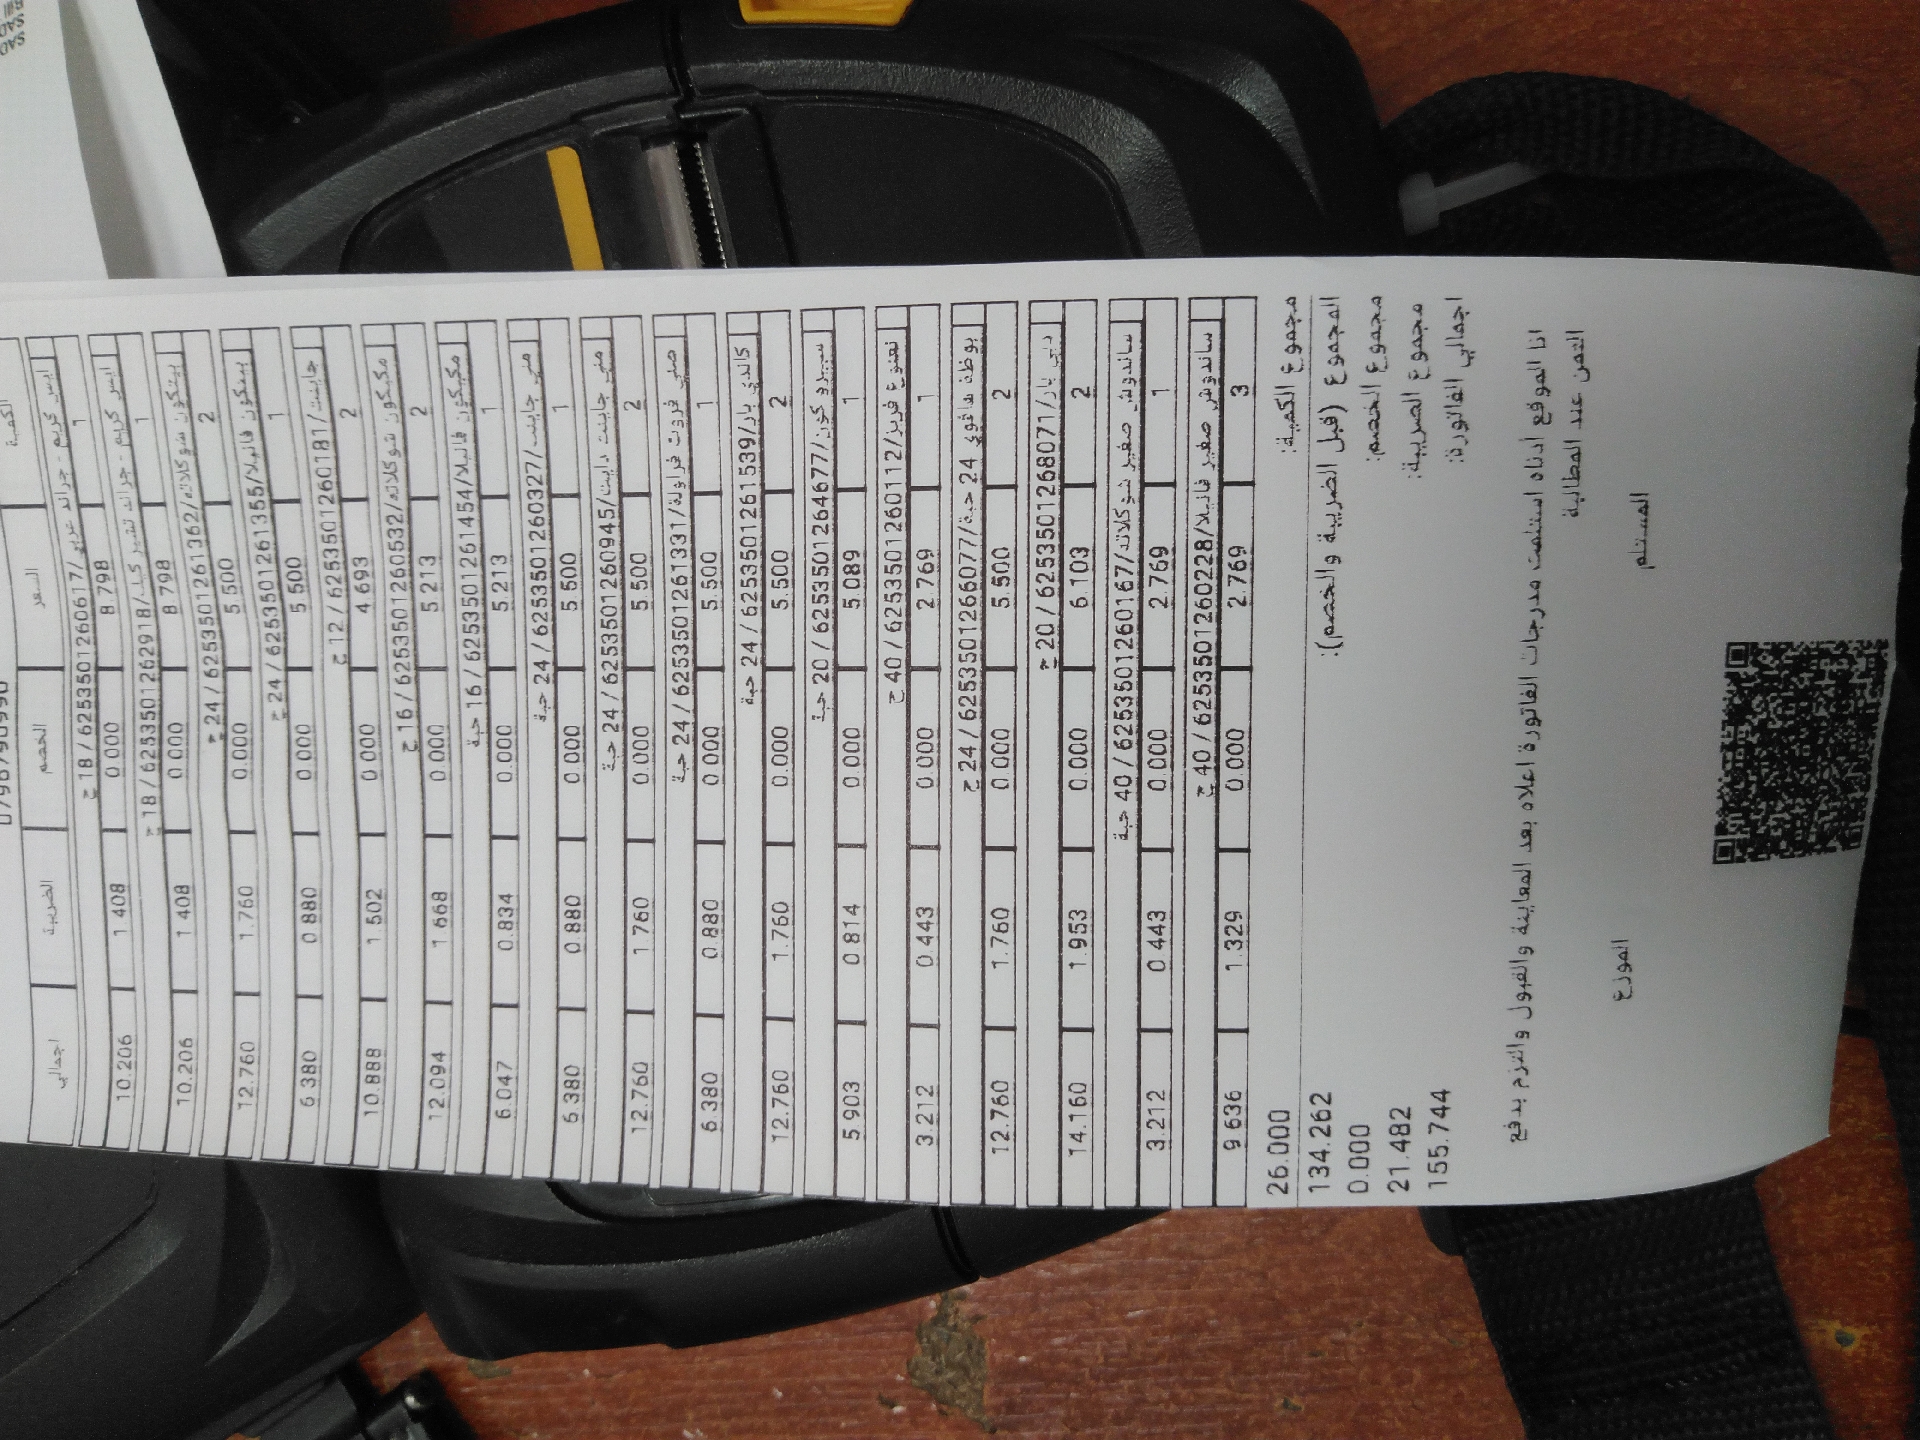 الكمية السعر الخصم الضريبة اجمالي
ايس كريم - جراند عربي/6253501260617 / 18 ح
1 8.798 0.000 1.408 10.206
ايس كريم - جراند تشيز كيك/6253501262918 / 18 ح
1 8.798 0.000 1.408 10.206
بيتكون شوكلاته/6253501261362 / 24 ح
2 5.500 0.000 1.760 12.760
بيتكون فانيلا/6253501261355 / 24 ح
1 5.500 0.000 0.880 6.380
جاينت/6253501260181 / 12 ح
2 4.693 0.000 1.502 10.888
مكيكون شوكلاته/6253501260532 / 16 ح
2 5.213 0.000 1.668 12.094
مكيكون فانيلا/6253501261454 / 16 حبة
1 5.213 0.000 0.834 6.047
ميني جاينت/6253501260327 / 24 حبة
1 5.500 0.000 0.880 6.380
ميني جاينت دايت/6253501260945 / 24 حبة
2 5.500 0.000 1.760 12.760
ميني فروت فراولة/6253501261331 / 24 حبة
1 5.500 0.000 0.880 6.380
كالدي بار/6253501261539 / 24 حبة
2 5.500 0.000 1.760 12.760
سبيرو كون/6253501264677 / 20 حبة
1 5.089 0.000 0.814 5.903
نعنوع فريز/6253501260112 / 40 ح
1 2.769 0.000 0.443 3.212
بوظة 24 حبة/6253501266077 / 24 ح
2 5.500 0.000 1.760 12.760
دبي بار/6253501268071 / 20 ح
2 6.103 0.000 1.953 14.160
ساندوش صغير شوكلاته/6253501260167 / 40 حبة
1 2.769 0.000 0.443 3.212
ساندوش صغير فانيلا/6253501260228 / 40 ح
3 2.769 0.000 1.329 9.636
مجموع الكمية: 26.000
المجموع (قبل الضريبة والخصم): 134.262
مجموع الخصم: 0.000
مجموع الضريبة: 21.482
اجمالي الفاتورة: 155.744
انا الموقع ادناه استلمت مدرجات الفاتورة اعلاه بعد المعاينة والقبول والتزم بدفع
الثمن عند المطالبة
المستلم الموزع